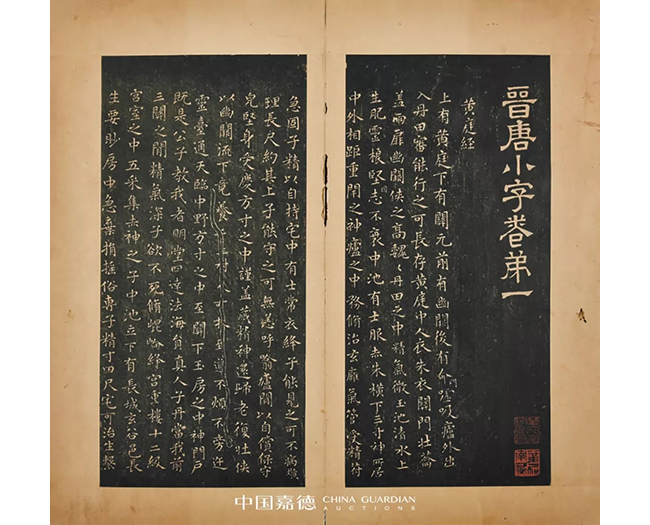 晉唐小字卷第一
黄庭經
上有黄庭下有關元前有幽闕後有命廬吸廬外出
入丹田審能行之可長存黄庭中人衣朱衣關門壯籥
蓋兩扉幽闕侠之高魏〻丹田之中精氣微玉池清水上
生肥靈根堅志不衰中池有士服赤朱橫下三寸神所居
中外相距重閉之神廬之中務脩治玄膺氣管受精符
急固子精以自持宅中有士常衣絳子能見之可不病
理長尺約其上子能守之可無恙呼噏廬間以自償保守
皃堅身受慶方寸之中謹盖藏精神還歸老復壯侠
以幽闕流下竟養
不煩不旁迕
靈臺通天臨中野方寸之中至關下玉房之中神門戶
既是公子教我者明堂四達法海負真人子丹當我前
三關之間精氣深子欲不死脩崐崘絳宮重樓十二級
宮室之中五采集赤神之子中池立下有長城玄谷邑長
生要眇房中急棄捐搖俗專子精寸田尺宅可治生繫
中国嘉德 CHINA GUARDIAN
AUCTIONS